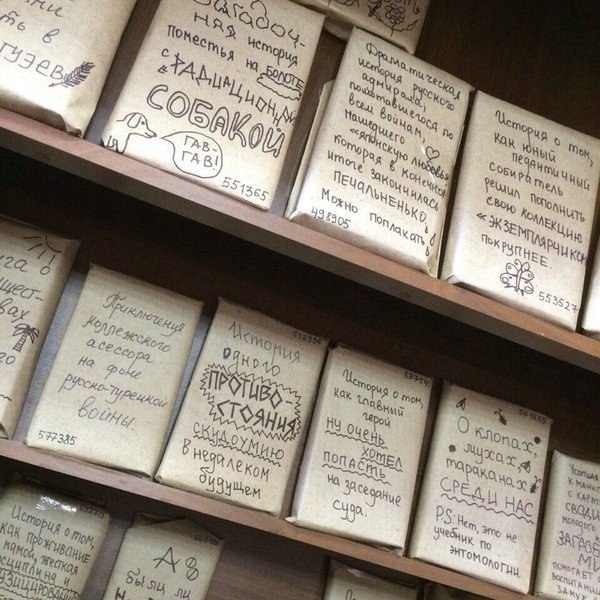 ть в
Загадоч-
ная история
поместья на болоте
с «РАДИАЦИОННОЙ
СОБАКОЙ
ГАВ-
ГАВ!
551365
Драматическая
история русского
адмирала,
помотавшегося по
всем войнам,
нашедшего
«японскую любовь»
которая в конечном
итоге закончилась
ПЕЧАЛЬНЕНЬКО.
Можно поплакать
498905
История о том,
как юный
педантичный
собиратель
решил пополнить
свою коллекцию
«ЭКЗЕМПЛЯРЧИКОМ
покрупнее.
553527
Приключения
коллежского
асессора
на фоне
русско-турецкой
войны.
577385
512996
История
одного
ПРОТИВО-
СТОЯНИЯ
СКУДОУМИЮ
в недалеком
будущем
587541
История о том,
как главный
герой
ну очень
хотел
попасть
на заседание
суда.
561555
О клопах,
мухах,
тараканах
СРЕДИ НАС
P.S: Нет, это не
учебник по
энтомологии
История о том,
как проживание
с мамой, жёсткая
А
были ли